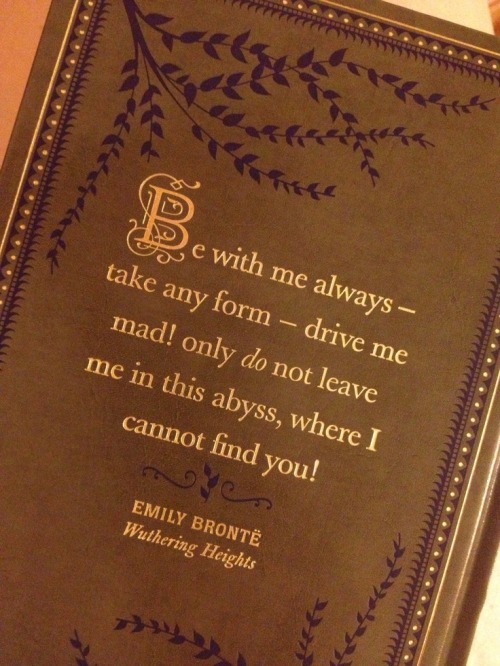 Be with me always –
take any form – drive me
mad! only do not leave
me in this abyss, where I
cannot find you!
EMILY BRONTË
Wuthering Heights